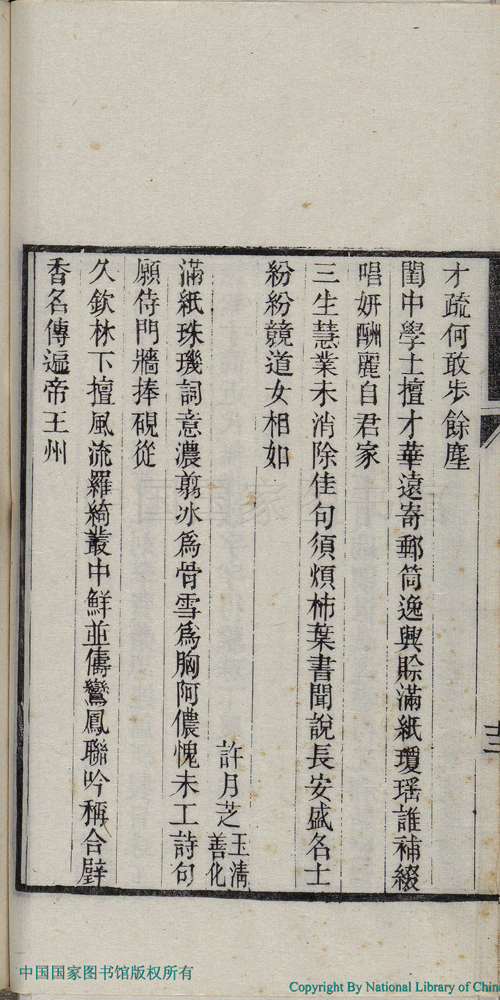 才疏何敢步餘塵
閨中學士擅才華遠寄郵筒逸興賒滿紙瓊瑶誰補綴
唱妍酬麗自君家
三生慧業未消除佳句須煩柿葉書聞說長安盛名士
紛紛競道女相如
許月芝玉清善化
滿紙珠璣詞意濃翦冰爲骨雪爲胸阿儂愧未工詩句
願侍門牆捧硯從
久欽林下擅風流羅綺叢中鮮並儔鸞鳳聯吟稱合璧
香名傳遍帝王州
十三
中国国家图书馆版权所有
Copyright By National Library of Chin